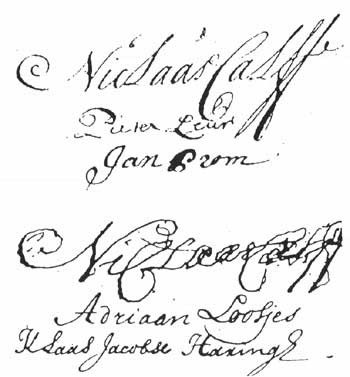 Niclaas Calff
Pieter Leur
Jan Prom
Niclaas Calff
Adriaan Loosjes
Klaas Jacobse Haring